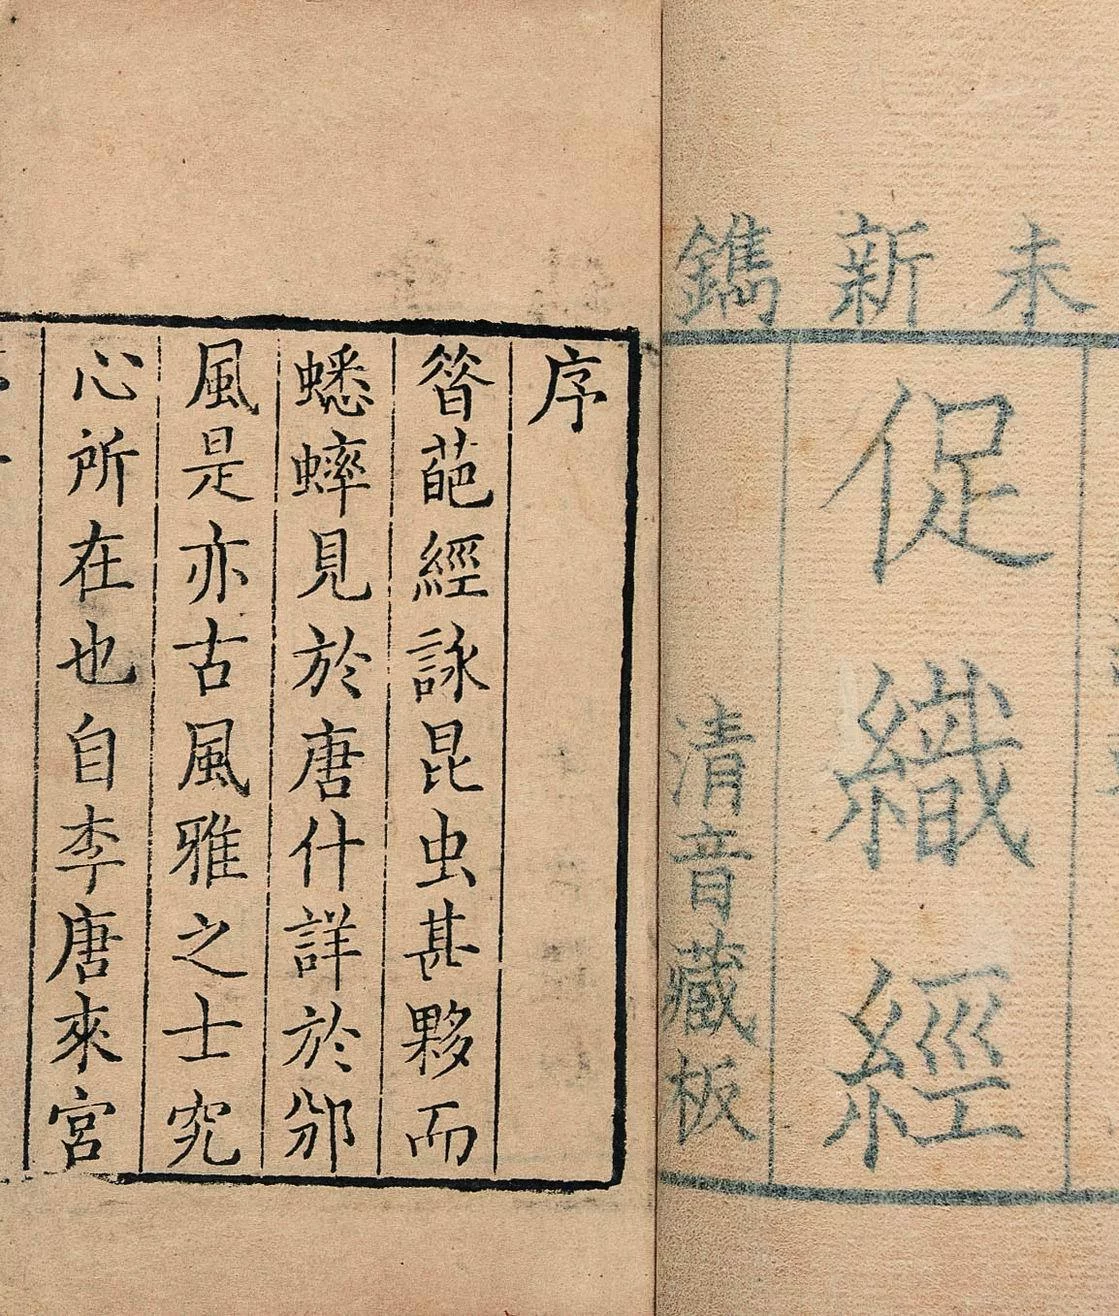 未新鐫
促織經
清音藏板
序
㫺葩經詠昆虫甚夥而
蟋蟀見於唐什詳於邠
風是亦古風雅之士究
心所在也自李唐來宮